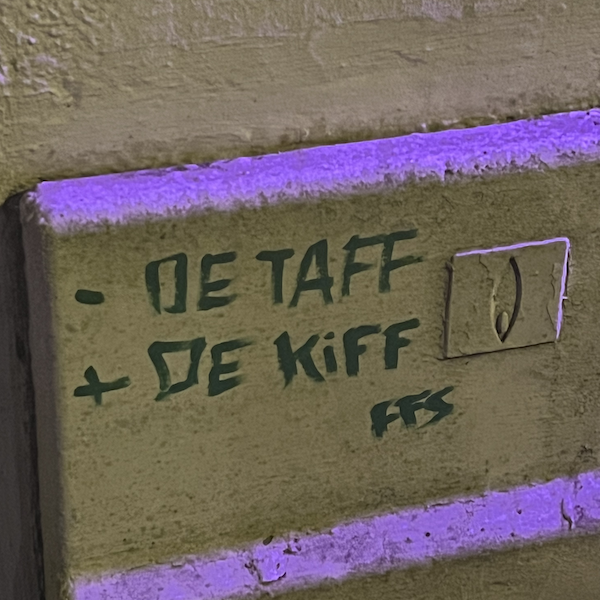 - DE TAFF
+ DE KiFF
FFS